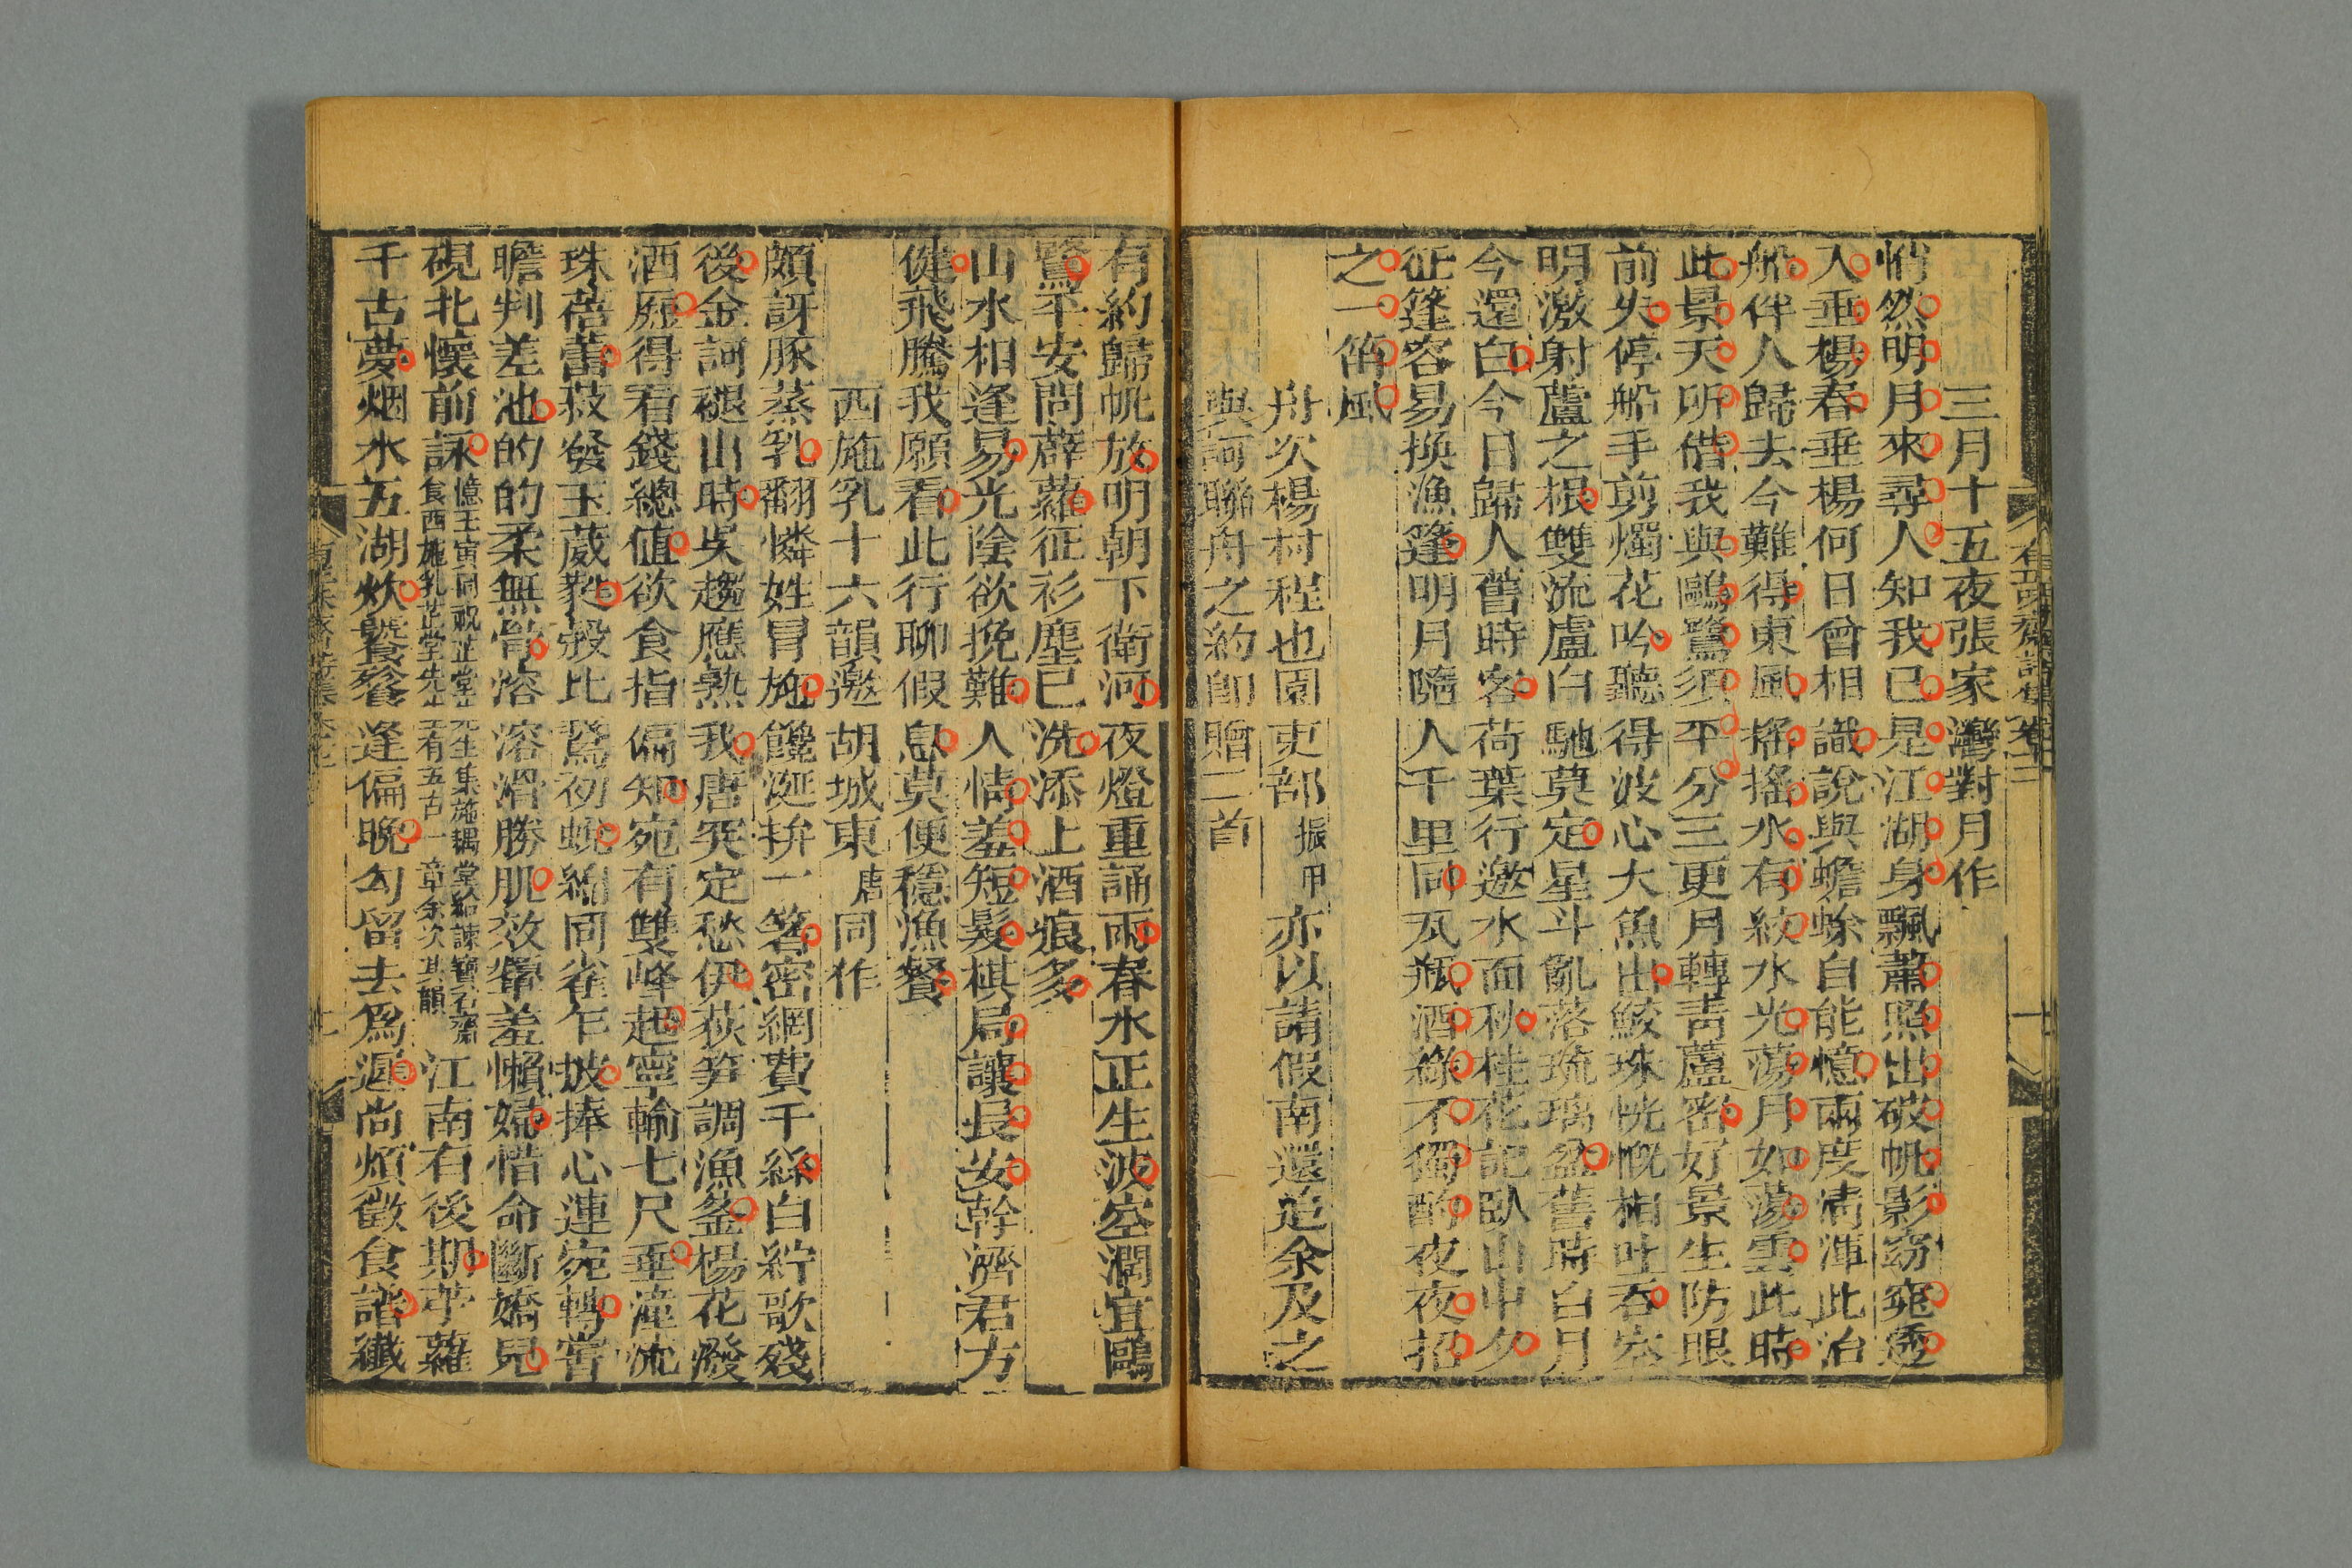 三月十五夜張家灣對月作
悄然明月來尋人知我已是江湖身飄蕭照出破帆影窈窕透
入垂楊春垂楊何日曾相識說與蟾蜍自能憶兩度清渾此泊
船伴人歸去今難得東風搖搖水有紋水光蕩月如蕩雲此時
此景天所借我與鷗鷺須平分三更月轉青蘆密好景生防眼
前失停船手剪燭花吟聽得波心大魚出鮫珠恍慨相吐吞空
明激射蘆之根雙流盧白馳莫定星斗亂落琉璃盆舊時白月
今還白今日歸人舊時客荷葉行邀水面秋桂花記臥山中夕
征篷容易換漁篷明月隨人千里同瓦瓶酒綠不獨酌夜夜招
之一笛風
舟次楊村程也園吏部振甲亦以請假南還追余及之
與訶聯舟之約卽贈二首
有約歸帆放明朝下衛河夜燈重誦雨春水正生波空濶宜鷗
鷺平安問薜蘿征衫塵已洗添上酒痕多
山水相逢易光陰欲挽難人情羞短髮棋局讓長安幹濟君方
健飛騰我願看此行聊假息莫便穩漁餐
西施乳十六韻邀胡城東唐同作
頗訝豚蒸乳翻憐姓冒施饞涎拚一箸密網費千絲白紵歌殘
後金訶褪山時吳趨應熟我唐突定愁伊荻筍調漁釜楊花潑
酒巵得看錢總值欲食指偏知宛有雙峰起寧輸七尺垂漨沈
珠蓓蕾菽發玉葳蕤縠比鵞初蛻綿同雀乍披捧心連宛轉嘗
膽判差池的的柔無骨溶溶滑勝肌效顰羞懶婦惜命斷嬌兒
硯北懷前詠憶壬寅同祝芷堂先生集施耦堂給諫寶石齋食西施乳芷堂先生有五古一章余次其韻江南有後期苧蘿
千古夢烟水五湖炊饕餮逢偏晚勾留去爲遲尚煩徵食譜纖